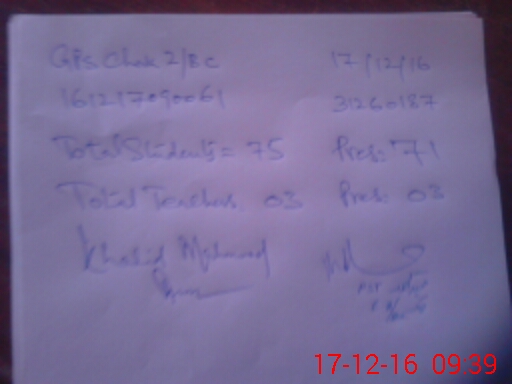 GPS Chak 2/BC 17/12/16
161217090061 31260187
Total Students = 75 Pres: 71
Total Teachers. 03 Pres: 03
Khalid Mahmood
PST
17-12-16 09:39